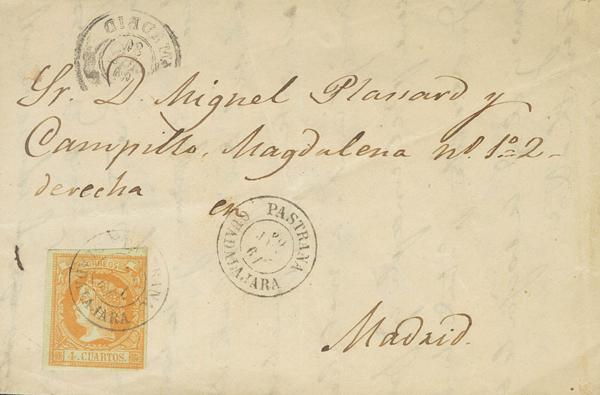 MADRID
Sr. D. Miguel Plassard y
Campillo, Magdalena nº. 1º 2-
derecha
en
PASTRANA
GUADALAJARA
61
CORREOS
4. CUARTOS.
Madrid.